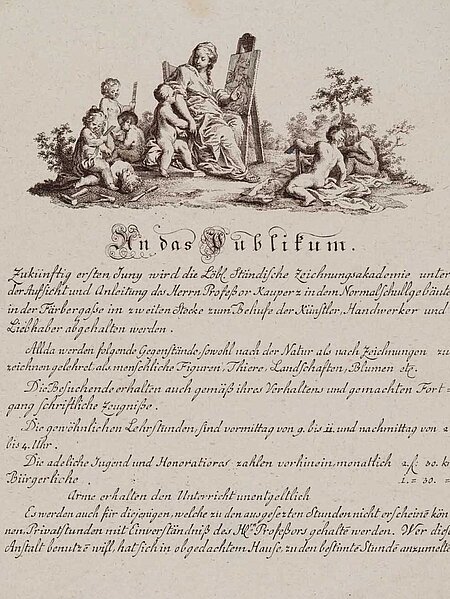 An das Publikum.
Zukünftig ersten Juny wird die Löbl. Ständische Zeichnungsakademie unter
der Aufsicht und Anleitung des Herrn Profeßor Kauperz in dem Normalschullgebäude
in der Färbergaße im zweiten Stocke zum Behufe der Künstler, Handwerker und
Liebhaber abgehalten werden.
Allda werden folgende Gegenstände, sowohl nach der Natur als nach Zeichnungen zu
zeichnen gelehret, als menschliche Figuren, Thiere, Landschaften, Blumen etc.
Die Besuchende erhalten auch gemäß ihres Verhaltens und gemachten Fort=
gang schriftliche Zeugniße.
Die gewöhnlichen Lehrstunden, sind vormittag von 9. bis 11. und nachmittag von 2
bis 4. Uhr.
Die adeliche Jugend und Honoratiores zahlen vorhinein monatlich 2 f: 30 k
Bürgerliche 1. = 30. =
Arme erhalten den Unterricht unentgeltlich
Es werden auch für diejenigen, welche zu den ausgesezten Stunden nicht erscheinē kön
nen, Privatstunden mit Einverständniß des Hrn Profeßors gehaltē werden. Wer diese
Anstalt benutzē will, hat sich in obgedachtem Hause, zu den bestimtē Stundē anzumeltē